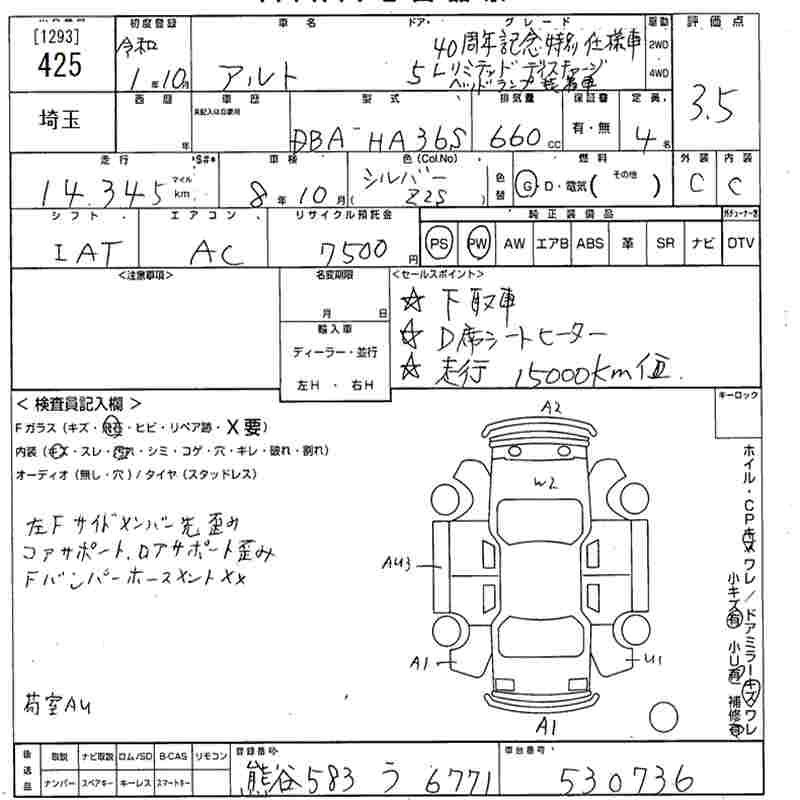 [1293]
425
初度登録
令和
1年10月
車名
アルト
ドア
5
グレード
40周年記念特別仕様車
Lリミテッド ディスチャージ
ヘッドランプ装着車
駆動
2WD
4WD
評価点
3.5
埼玉
西暦
年
車歴
未記入は自家用
型式
DBA-HA36S
排気量
660cc
保証書
有・無
定員
4名
走行
14,345
マイル
km
"S#"
車検
8年10月
色(Col.No)
シルバー
(Z2S)
色替
燃料
G・D・電気( その他 )
外装
C
内装
C
シフト
IAT
エアコン
AC
リサイクル預託金
7500円
純正装備品
PS PW AW エアB ABS 革 SR ナビ
DTV
<注意事項>
名変期限
月 日
輸入車
ディーラー・並行
左H・右H
<セールスポイント>
☆ 下取車
☆ D席シートヒーター
☆ 走行 15000km伍.
キーロック
<検査員記入欄>
Fガラス(キズ・飛石・ヒビ・リペア跡・X要)
内装(キズ・スレ・汚れ・シミ・コゲ・穴・キレ・破れ・割れ)
オーディオ(無し・穴)/タイヤ(スタッドレス)
左Fサイドメンバー先歪み
コアサポート、ロアサポート歪み
FバンパーホースメントXX
荷室AU
A2
W2
AU3
A1
U1
A1
ホイル・CPキズワレ/ドアミラーキズワレ
小キズ有 小U有 補修有
後送品
取説 ナビ取説 ロム/SD B-CAS リモコン
ナンバー スペアキー キーレス スマートキー
登録番号
熊谷583 う 6771
車台番号
530736